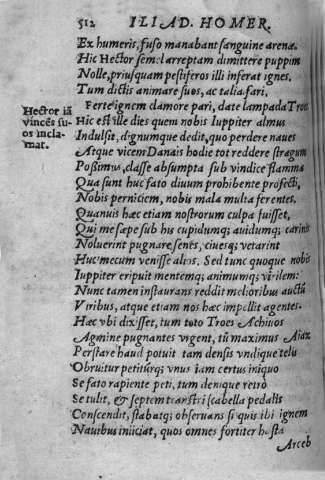 512 ILIAD. HOMER.
Ex humeris, fuso manabant sanguine arenæ.
Hic Hector semel arreptam dimittere puppim
Nolle, priusquam pestiferos illi inferat ignes.
Tum dictis animare suos, ac talia fari.
Ferte ignem clamore pari, date lampada Troes
Hector iã
vincẽs su/
os incla-
mat.
Hic est ille dies quem nobis Iuppiter almus
Indulsit, dignumque dedit, quo perdere naues
Atque vicem Danais hodie tot reddere stragum
Possimus, classe absumpta sub vindice flamma
Quæ sunt huc fato diuum prohibente profecti,
Nobis perniciem, nobis mala multa ferentes.
Quanuis hæc etiam nostrorum culpa fuisset,
Qui me sæpe sub his cupidumq; auidumq; carinis
Noluerint pugnare senes, ciuesq; vetarint
Huc mecum venisse alios. Sed tunc quoque nobis
Iuppiter eripuit mentemq; animumq; virilem:
Nunc tamen instaurans reddit melioribus auctũ
Viribus, atque etiam nos hæc impellit agentes.
Hæc vbi dixisset, tum toto Troes Achiuos
Agmine pugnantes vrgent, tũ maximus Aiax
Perstare haud potuit tam densis vndique telis
Obruitur petiturq; vnus iam certus iniquo
Se fato rapiente peti, tum denique retro
Se tulit, & septem transtri scabella pedalis
Conscendit, stabatq; obseruans si quis ibi ignem
Nauibus iniiciat, quos omnes fortiter hasta
Arceb